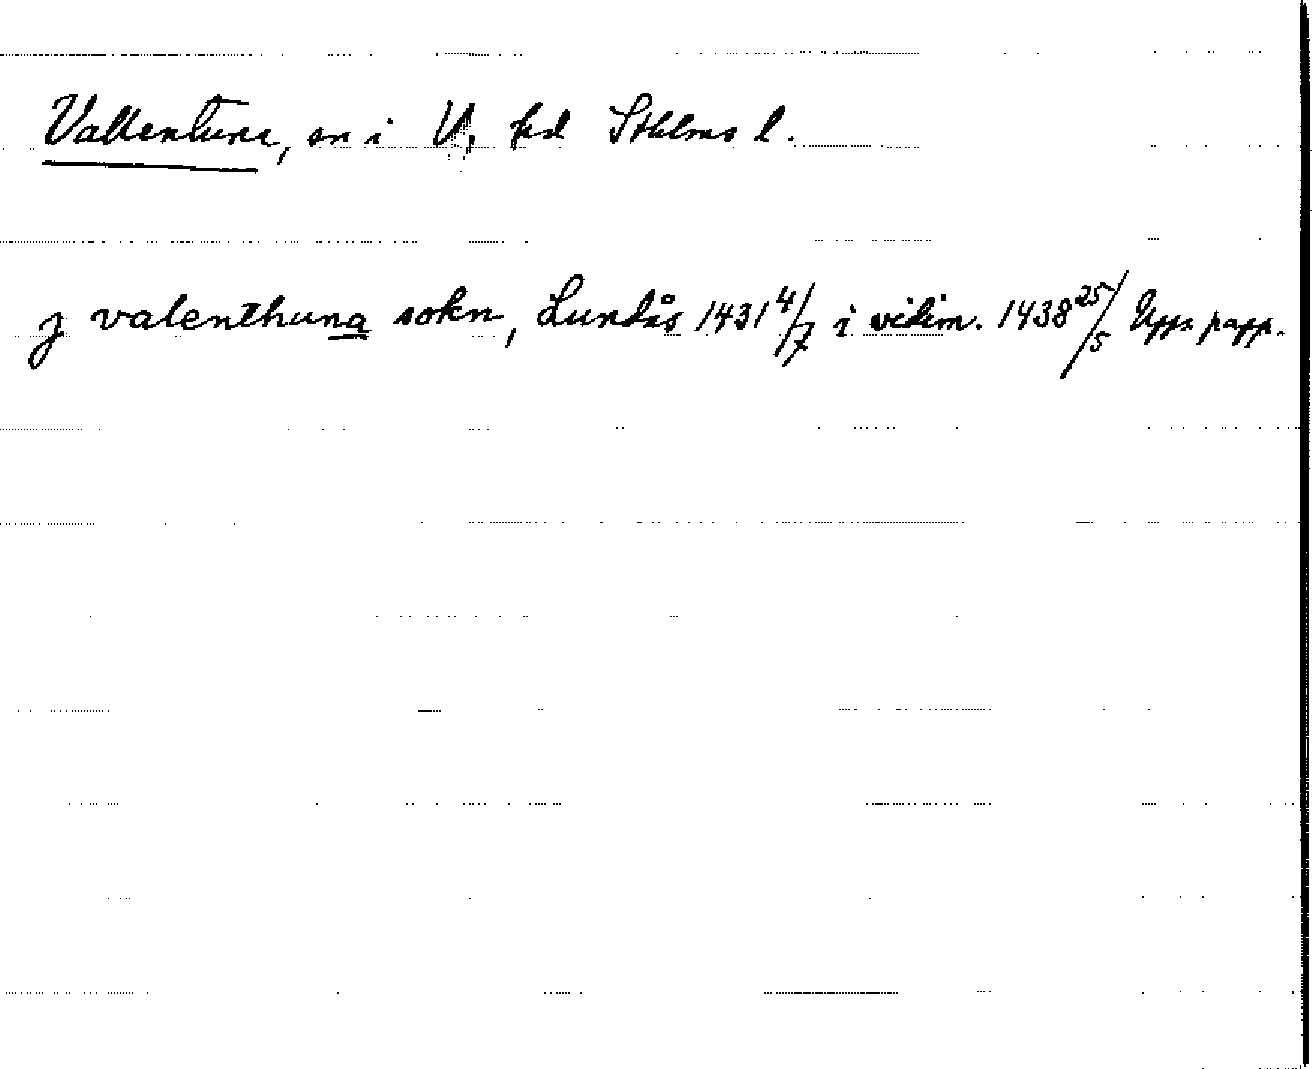 Vallentuna, sn i U, hd Sthlms l.
j valenthuna sokn, Lundås 1431 4/7 i vidim. 1438 25/5 Upps papp.